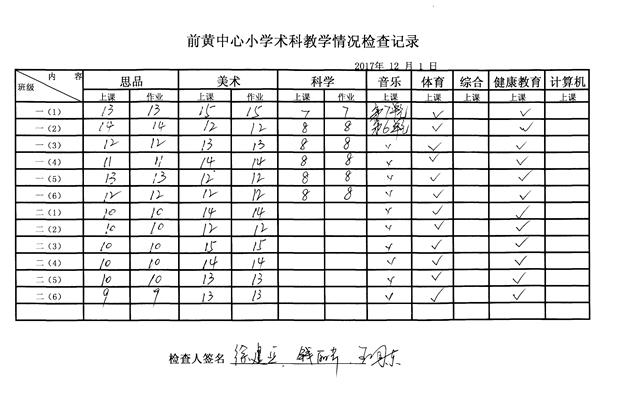 前黄中心小学术科教学情况检查记录
2017年 12 月 1 日
内 容 思品 美术 科学 音乐 体育 综合 健康教育 计算机
班级 上课 作业 上课 作业 上课 作业 上课 上课 上课 上课 上课
一（1） 13 13 15 15 7 7 第7单元 ✓ ✓
一（2） 14 14 12 12 8 8 第6单元 ✓ ✓
一（3） 12 12 13 13 8 8 ✓ ✓ ✓
一（4） 11 11 14 14 8 8 ✓ ✓ ✓
一（5） 13 13 12 12 8 8 ✓ ✓ ✓
一（6） 12 12 12 12 8 8 ✓ ✓ ✓
二（1） 10 10 14 14 ✓ ✓ ✓
二（2） 10 10 12 12 ✓ ✓ ✓
二（3） 10 10 15 15 ✓ ✓ ✓
二（4） 10 10 14 14 ✓ ✓ ✓
二（5） 10 10 13 13 ✓ ✓ ✓
二（6） 9 9 13 13 ✓ ✓ ✓
检查人签名 徐建